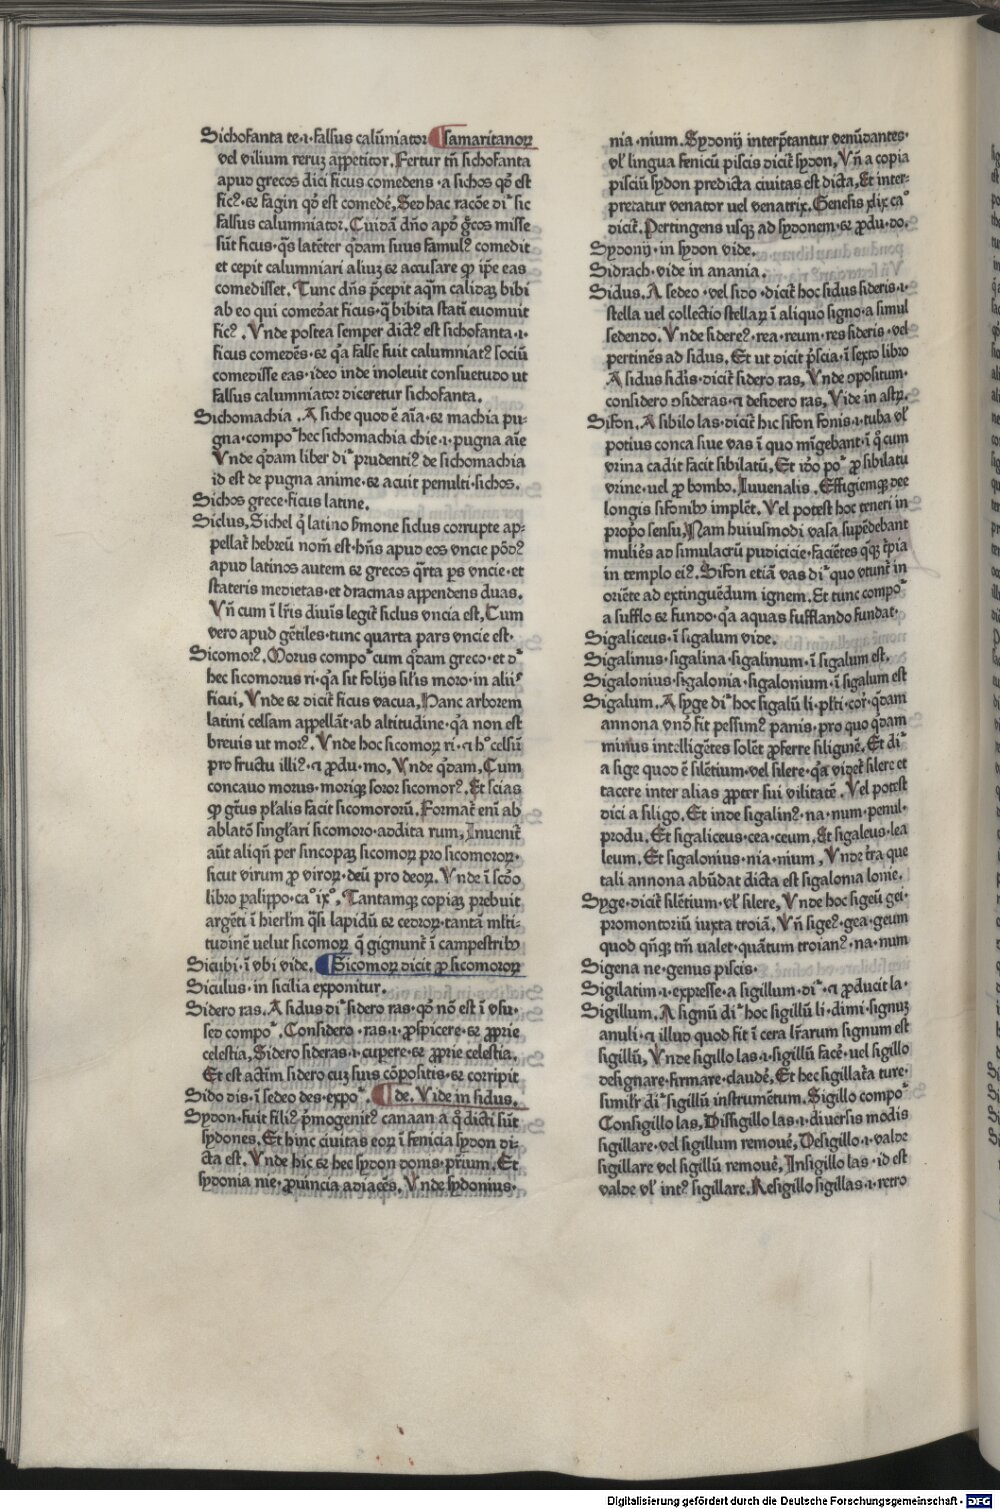 Sichofanta te·i·falsus calūniator ¶samaritanoꝝ
vel vilium reruꝫ appetitor. Fertur tñ sichofanta
apud grecos dici ficus comedens·a sichos qđ est
ficꝰ·⁊ fagin qđ est comedē, Sed hac racōe dīꝛ sic
falsus calumniator. Cuidā dño apđ ḡcos misse
sūt ficus·q̄s latēter q̄dam suus famulꝰ comedit
et cepit calumniari aliuꝫ ⁊ accusare ꝙ ip̄e eas
comedisset. Tunc dñs p̄cepit aq̄m calidaꝫ bibi
ab eo qui comeđat ficus·q̄ bibita statī euomuit
ficꝰ. Vnde postea semper dictꝰ est sichofanta·i·
ficus comedēs·⁊ q̄a false fuit calumniatꝰ sociū
comedisse eas·ideo inde inoleuit consuetudo ut
falsus calumniator diceretur sichofanta.
Sichomachia. A siche quod ē aīa·⁊ machia pu⸗
gna·compoꝛ hec sichomachia chie·i·pugna aīe
Vnde q̄dam liber dīꝛ prudentiꝰ de sichomachia
id est de pugna anime·⁊ acuit penulti·sichos.
Sichos grece·ficus latine.
Siclus, Sichel q̄ latino ẜmone siclus corrupte ap⸗
pellat̄ hebreū nom̄ est·hñs apud eos vncie pōdꝰ
apud latinos autem ⁊ grecos q̄rta p̄s vncie·et
stateris medietas·et dracmas appendens duas.
Vñ cum ī lr̄is diuīs legit̄ siclus vncia est, Cum
vero apud gētiles·tunc quarta pars vncie est·
Sicomorꝰ. Morus compoꝛ cum q̄dam greco·et dꝛ
hec sicomorus ri·q̄a sit folijs sił̄is moro·in aliiˢ
ficui, Vnde ⁊ dicit̄ ficus vacua, Hanc arborem
latini celsam appellāt·ab altitudine·q̄a non est
breuis ut morꝰ. Vnde hoc sicomoꝝ ri·⁊ hᵒ celsū
pro fructu illiꝰ·⁊ ꝓdu·mo, Vnde q̄dam, Cum
concauo morus·moriqꝫ soror sicomorꝰ. Et scias
ꝙ gn̄us pł̄alis facit sicomororū. Format̄ enī ab
ablatō singł̄ari sicomoro·addita rum, Inuenit̄
aūt aliqñ per sincopaꝫ sicomoꝝ pro sicomoroꝝ·
sicut virum ꝓ viroꝝ·deū pro deoꝝ. Vnde ī scđo
libro palippo·caᵒ ixᵒ, Tantamqꝫ copiaꝫ prebuit
argēti ī hierłm q̄si lapidū ⁊ cedroꝝ·tantā mł̄ti⸗
tudinē velut sicomoꝝ q̄ gignunt̄ ī campestribꝰ
Sicubi·ī vbi vide. ¶Sicomoꝝ dicit̄ ꝓ sicomoroꝝ
Siculus·in sicilia exponitur.
Sidero ras. A sidus dīꝛ sidero ras·qđ nō est ī vsu·
sed compoꝛ. Considero·ras·i·ꝓspicere·⁊ ꝓprie
celestia, Sidero sideras·i·cupere·⁊ ꝓprie celestia.
Et est actīm sidero cuꝫ suis cōpositis·⁊ corripit
Sido dis·ī sedeo des·expoꝛ. ¶de. Vide in sidus.
Sydon·fuit filiꝰ p̄mogenitꝰ canaan a q̄ dicti sūt
sydones, Et hinc ciuitas eoꝝ ī fenicia sydon di⸗
cta est. Vnde hic ⁊ hec sydon donis·pr̄ium. Et
sydonia nie·ꝓuincia adiacēs, Vnde sydonius·
nia·nium. Sydonij interp̄tantur venūdantes·
vł̄ lingua fenicū piscis dicit̄ sydon, Vñ a copia
pisciū sydon predicta ciuitas est dicta, Et inter⸗
pretatur venator uel venatrix. Genesis xlix caᵒ
dicit̄. Pertingens usqꝫ ad sydonem·⁊ ꝓdu·do.
Sydonij·in sydon vide.
Sidrach·vide in anania.
Sidus. A sedeo·vel sido·dicit̄ hoc sidus sideris·i·
stella uel collectio stellaꝝ ī aliquo signo·a simul
sedendo. Vnde sidereꝰ·rea·reum·res sideris·vel
pertinēs ad sidus. Et ut dicit p̄scia·ī sexto libro
A sidus sidis·dicit̄ sidero ras, Vnde ꝯpositum·
considero ꝯsideras·⁊ desidero ras, Vide in astꝝ.
Sifon. A sibilo las·dicit̄ hic sifon fonis·i·tuba vł̄
potius conca siue vas ī quo mīgebant·ī q̄ cum
vrina cadit facit sibilatū, Et iđo poꝛ ꝓ sibilatu
vrine·uel ꝓ bombo. Iuuenalis. Effigiemqꝫ dee
longis sifonibꝰ implēt. Vel potest hoc teneri in
propo sensu, Nam huiusmodi vasa supēdebant
muliēs ad simulacrū pudicicie·faciētes q̄qꝫ t̄pia
in templo eiꝰ. Sifon etiā vas dīꝛ quo vtunt̄ in
oriēte ad extinguēdum ignem. Et tunc compoꝛ
a sufflo ⁊ fundo·q̄a aquas sufflando fundat·
Sigaliceus·ī sigalum vide.
Sigalinus·sigalina·sigalinum·ī sigalum est.
Sigalonius·sigalonia·sigalonium·ī sigalum est
Sigalum. A syge dīꝛ hoc sigalū li·pł̄ti·corꝛ·q̄dam
annona vnđ fit pessimꝰ panis·pro quo q̄dam
minus intelligētes solēt ꝓferre siliginē. Et dīꝛ
a sige quod ē silētium·vel silere·q̄a videt̄ silere et
tacere inter alias ꝓpter sui vilitatē. Vel potest
dici a siligo. Et inde sigalinꝰ·na·num·penul·
produ. Et sigaliceus·cea·ceum. Et sigaleus·lea
leum. Et sigalonius·nia·nium, Vnde t̄ra que
tali annona abūdat dicta est sigalonia lonie.
Syge·dicit̄ silētium·vł̄ silere, Vnde hoc sigeū gei·
promontoriū iuxta troiā. Vñ sigeꝰ·gea·geum
quod q̄nqꝫ tm̄ ualet·quātum troianꝰ·na·num
Sigena ne·genus piscis·
Sigilatim·i·expresse·a sigillum·dīꝛ·⁊ ꝓducit la·
Sigillum. A signū dīꝛ hoc sigillū li·dimi·signuꝫ
anuli·⁊ illud quod fit ī cera lr̄arum signum est
sigillū, Vnde sigillo las·i·sigillū facē·uel sigillo
designare·firmare·claudē, Et hec sigillat̄a ture·
similr̄ dīꝛ sigillū instrumētum. Sigillo compoꝛ
Consigillo las, Dissigillo las·i·diuersis modis
sigillare·vel sigillum remouē, Desigillo·i·valde
sigillare vel sigillū remouē, Insigillo las·id est
valde vł̄ intꝰ sigillare. Resigillo sigillas·i·retro
Digitalisierung gefördert durch die Deutsche Forschungsgemeinschaft - DFG